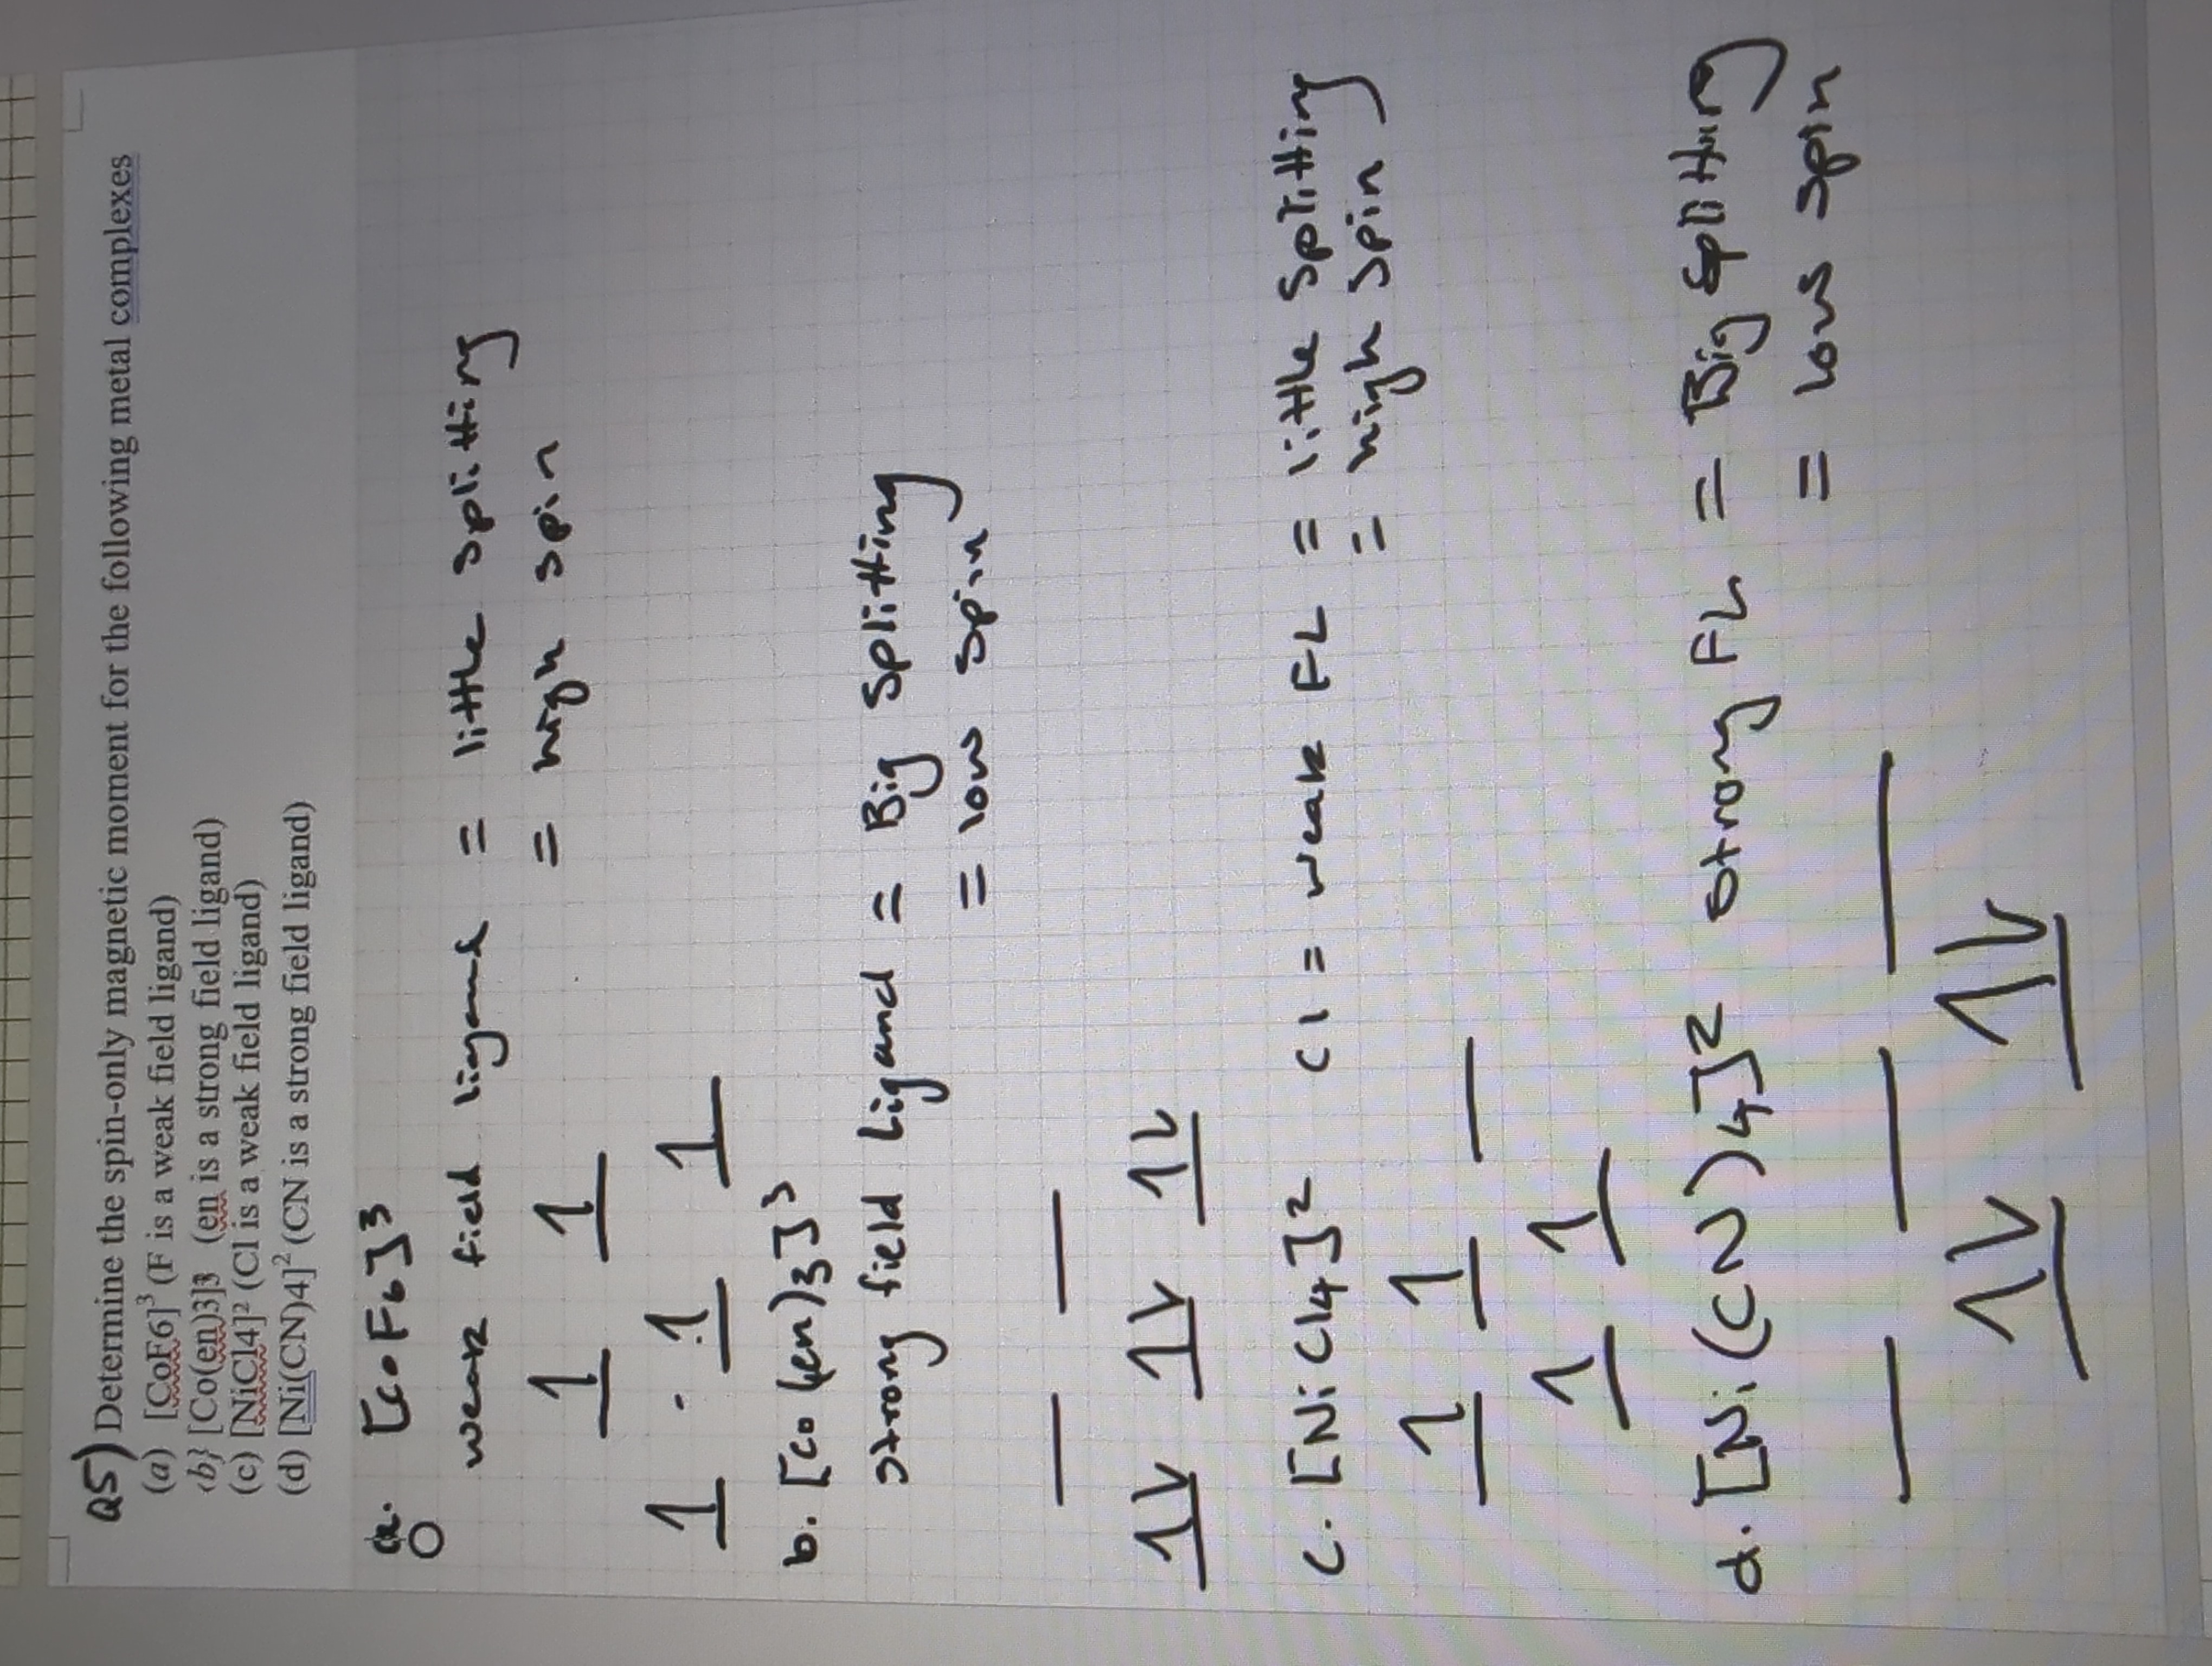 Q5) Determine the spin-only magnetic moment for the following metal complexes
(a) [CoF6]³ (F is a weak field ligand)
(b} [Co(en)3]3 (en is a strong field ligand)
(c) [NiCl4]² (Cl is a weak field ligand)
(d) [Ni(CN)4]² (CN is a strong field ligand)
a. [CoF6]³
weak field ligand = little splitting
= high spin
1 1
1 1 1
b. [Co(en)3]³
strong field ligand = Big splitting
= low spin
1V 1V 1V
c. [NiCl4]² Cl = weak FL = little splitting
= high spin
1 1
1 1
d. [Ni(CN)4]² strong FL = Big splitting
= low spin
1V 1V